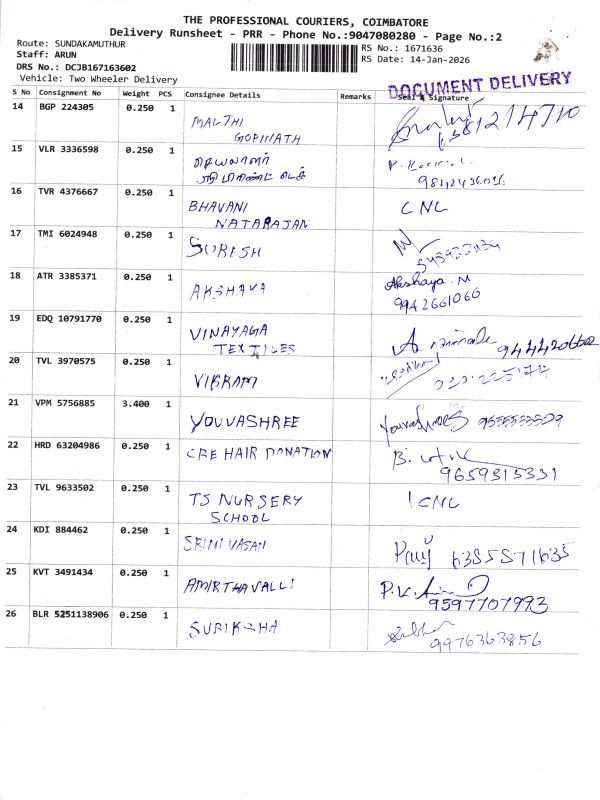 THE PROFESSIONAL COURIERS, COIMBATORE
Delivery Runsheet - PRR - Phone No.:9047080280 - Page No.:2
Route: SUNDAKAMUTHUR
Staff: ARUN
DRS No.: DCJB167163602
Vehicle: Two Wheeler Delivery
RS No.: 1671636
RS Date: 14-Jan-2026
DOCUMENT DELIVERY
S No Consignment No Weight PCS Consignee Details Remarks Seal & Signature
14 BGP 224305 0.250 1 MALTHI
GOPINATH
15 VLR 3336598 0.250 1
16 TVR 4376667 0.250 1 BHAVANI CNL
NATARAJAN
17 TMI 6024948 0.250 1 SURESH
18 ATR 3385371 0.250 1 AKSHAYA Akshaya.M
9942661066
19 EDQ 10791770 0.250 1 VINAYAGA
TEXTILES
20 TVL 3970575 0.250 1 VIKRAM
21 VPM 5756885 3.400 1 YOUVASHREE
22 HRD 63204986 0.250 1 CBE HAIR DONATION
9659315331
23 TVL 9633502 0.250 1 TS NURSERY CNL
SCHOOL
24 KDI 884462 0.250 1 SRINIVASAN 6385571635
25 KVT 3491434 0.250 1 AMIRTHAVALLI
9597707993
26 BLR 5251138906 0.250 1 SUBIKSHA
9976363856